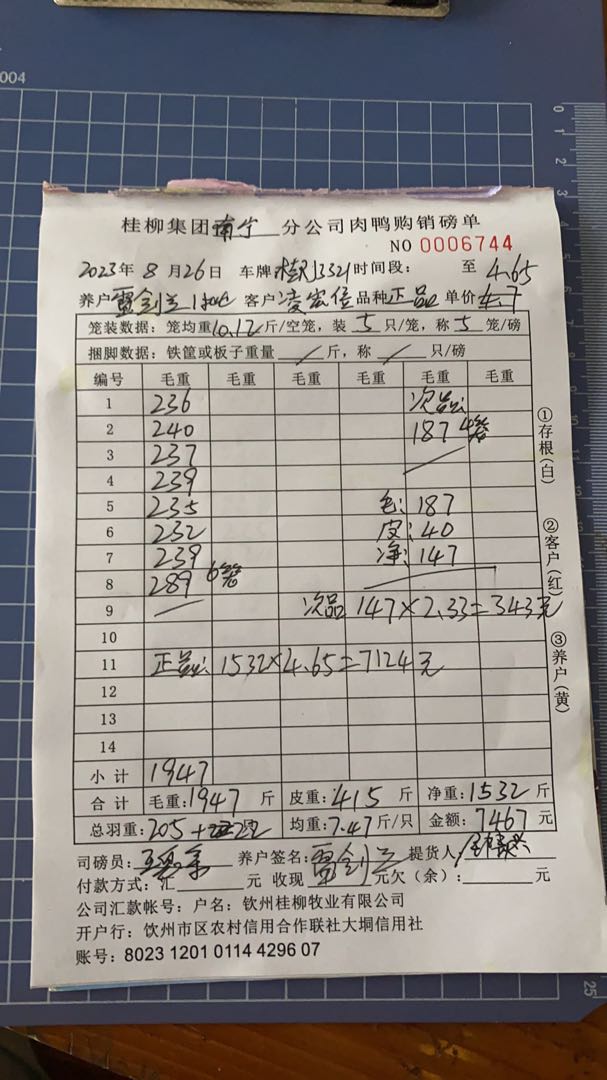 004
桂柳集团南宁分公司肉鸭购销磅单
NO 0006744
2023年 8月26日 车牌 13321 时间段: 至 4.65
养户 雷剑兰 客户 凌宏信 品种 正品 单价 4.7
笼装数据: 笼均重 10.12 斤/空笼, 装 5 只/笼, 称 5 笼/磅
捆脚数据: 铁筐或板子重量 / 斤, 称 / 只/磅
编号 毛重 毛重 毛重 毛重 毛重 毛重
1 236 次品:
2 240 187 4笼
3 237
4 239
5 235 毛: 187
6 232 皮: 40
7 239 净: 147
8 289 6笼
9 次品 147×2.33=343元
10
11 正品: 1532×4.65=7124元
12
13
14
小计 1947
合计 毛重: 1947 斤 皮重: 415 斤 净重: 1532 斤
总羽重: 205+ 均重: 7.47 斤/只 金额: 7467 元
司磅员: 养户签名: 雷剑兰 提货人
付款方式: 汇 元 收现 元欠(余): 元
公司汇款帐号: 户名: 钦州桂柳牧业有限公司
开户行: 钦州市区农村信用合作联社大垌信用社
账号: 8023 1201 0114 4296 07
①存根(白)
②客户(红)
③养户(黄)
0
1
2
3
25